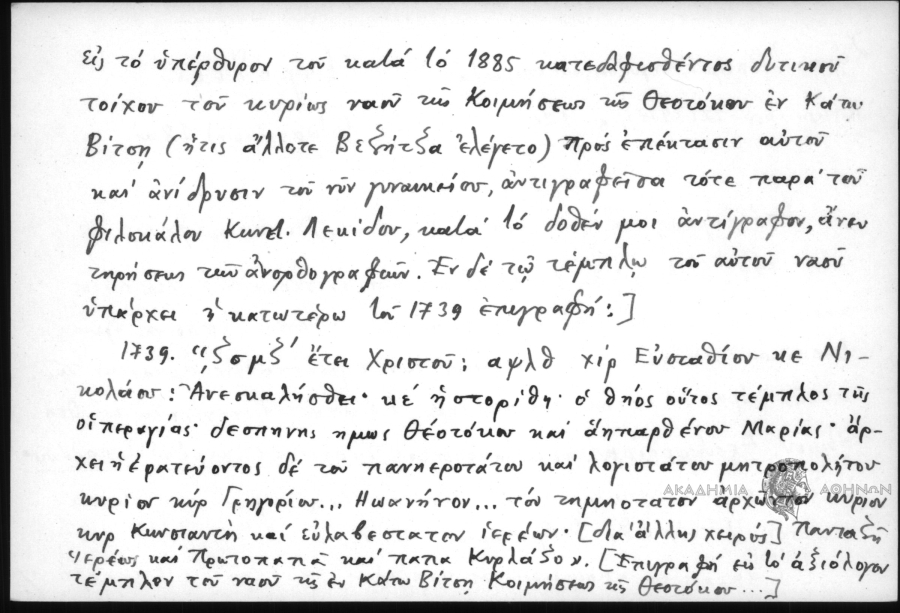 εἰς τό ὑπέρθυρον τοῦ κατά τό 1885 κατεδαφισθέντος δυτικοῦ
τοίχου τοῦ κυρίως ναοῦ τῆς Κοιμήσεως τῆς Θεοτόκου ἐν Κάτω
Βίτσῃ (ἥτις ἄλλοτε Βεζήτζα ἐλέγετο) πρός ἐπέκτασιν αὐτοῦ
καί ἀνίδρυσιν τοῦ νῦν γυναικείου, ἀντιγραφεῖσα τότε παρά τοῦ
φιλοκάλου Κωνστ. Λεκίδου, κατά τό δοθέν μοι ἀντίγραφον, ἄνευ
τηρήσεως τῶν ἀνορθογραφιῶν. Ἐν δέ τῷ τέμπλῳ τοῦ αὐτοῦ ναοῦ
ὑπάρχει ἡ κατωτέρω τοῦ 1739 ἐπιγραφή:]
1739. "͵ζσμζ΄ ἔτει Χριστοῦ: αψλθ χίρ Εὐσταθίου κε Νι-
κολάου: Ἀνεσκαλήσθει· κέ ἡστορίθη· ὁ θηός οὗτος τέμπλος τῆς
οἱπεραγίας· δεσπηνης ημως Θεότόκου καί ἄηπαρθένου Μαρίας· ἀρ-
χειἡερατεύοντος δέ τοῦ πανηεροτάτου καί λογιστάτου μητροπολήτου
κυρίου κύρ Γρηγορίου... Ηωανήνον... τόν τημηοτατον ἀρχώντον κυριον
κυρ Κωνσταντῆ καί εὐλαβεστατον ἱερέων· [διά ἄλλης χειρός] Πανταζῆ
ἱερέως καί Πρωτοπαπᾶ καί παπα Κυρλάζο». [Ἐπιγραφή εἰς τό ἀξιόλογον
τέμπλον τοῦ ναοῦ τῆς ἐν Κάτω Βίτσῃ Κοιμήσεως τῆς Θεοτόκου...]
ΑΚΑΔΗΜΙΑ ΑΘΗΝΩΝ